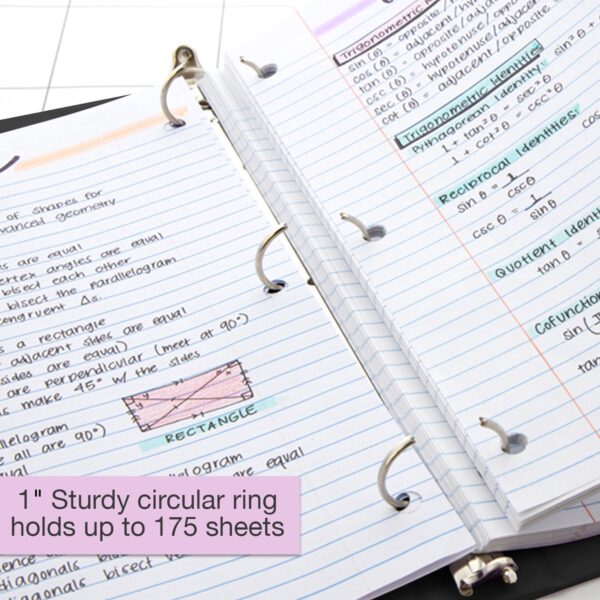 of shapes for
vanced geometry
s are equal
rtex angles are equal
bisect each other
bisect the parallelogram
congruent Δs.
s a rectangle
adjacent sides are equal
sides are equal)
are perpendicular (meet at 90°)
s make 45° w/ the sides
RECTANGLE
allelogram
e all are 90°)
qual
allelogram
are equal
1" Sturdy circular ring
holds up to 175 sheets
diagonals
diagonals bisect
Trigonometric
sin (θ) = opposite /
cos (θ) = adjacent/hy
tan (θ) = opposite/adja
csc (θ) = hypotenuse/oppo
sec (θ) = hypotenuse/adjacen
cot (θ) = adjacent/opposite
Trigonometric Identities
Pythagorean Identity: sin²θ +
1 + tan²θ = sec²θ
1 + cot²θ = csc²θ
Reciprocal Identities:
sin θ = 1/cscθ cos
csc θ = 1/sinθ
Quotient Identit
tan θ =
Cofunction
sin(
tan